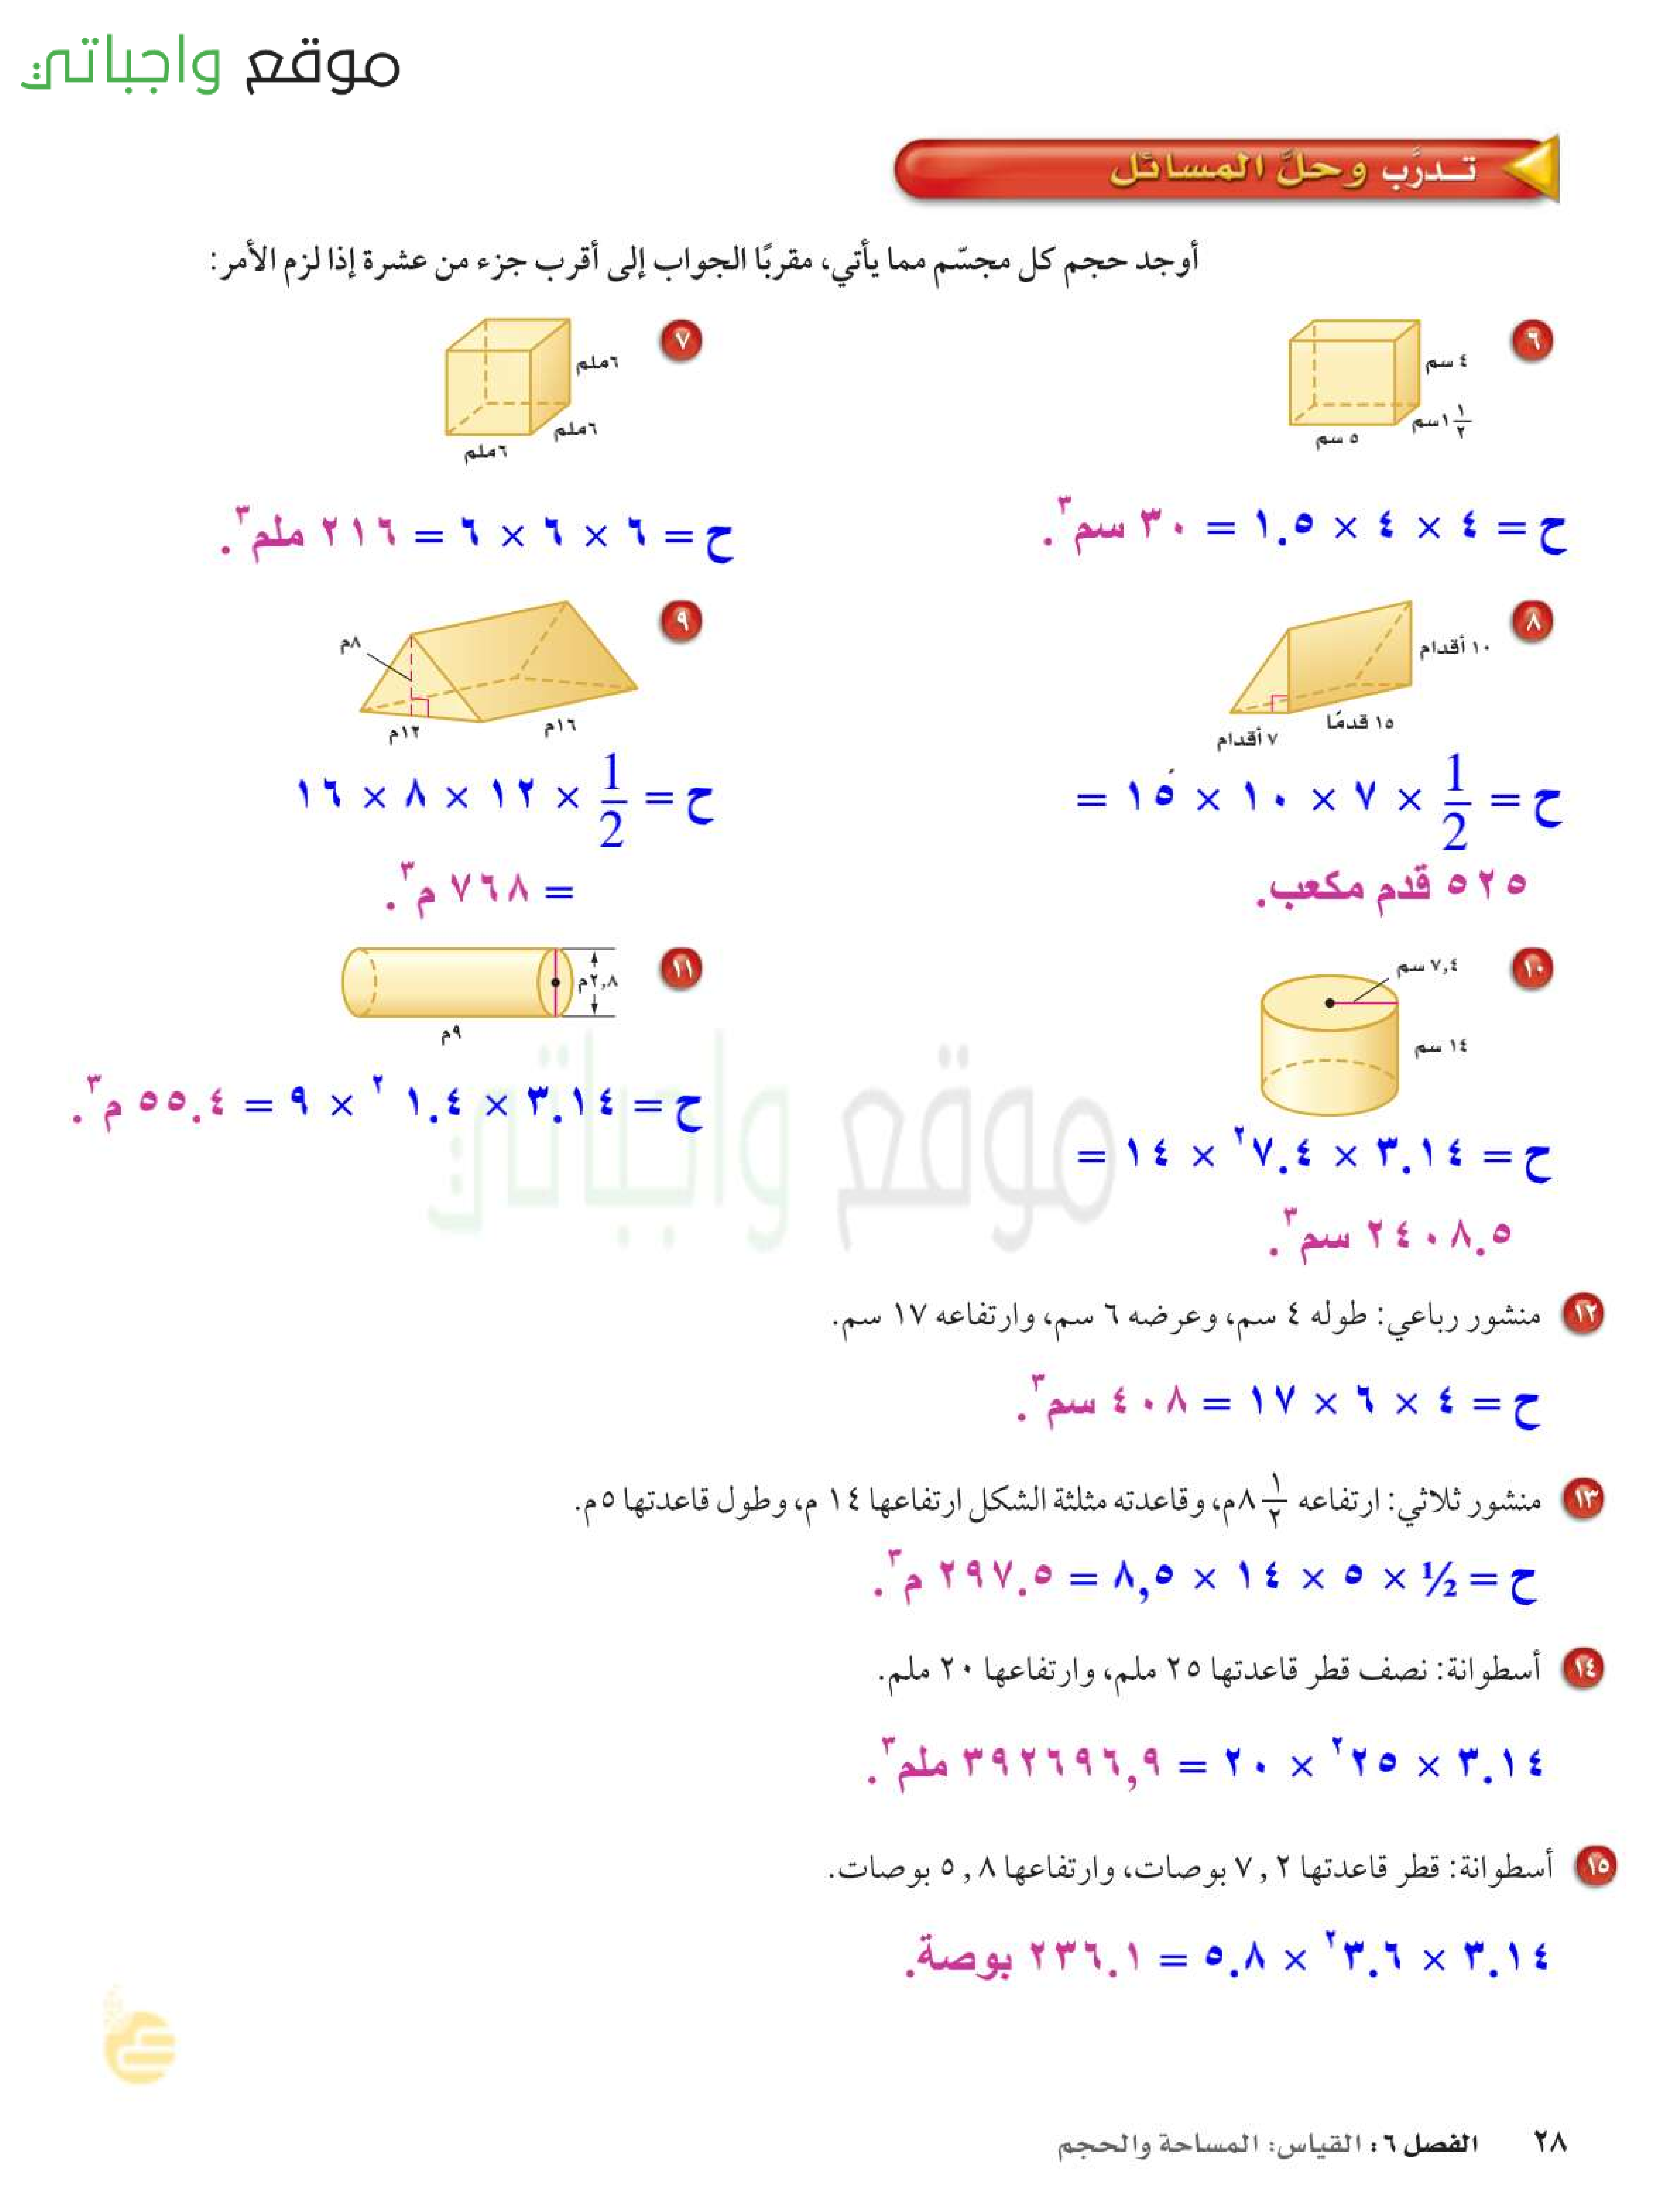 موقع واجباتي
تدرَّب وحلَّ المسائل
أوجد حجم كل مجسّم مما يأتي، مقربًا الجواب إلى أقرب جزء من عشرة إذا لزم الأمر:
٦
٤ سم
١ ١/٢ سم
٥ سم
٧
٦ملم
٦ملم
٦ملم
ح = ٤ × ٤ × ١.٥ = ٣٠ سم٣.
ح = ٦ × ٦ × ٦ = ٢١٦ ملم٣.
٨
١٠ أقدام
١٥ قدمًا
٧ أقدام
٩
٨م
١٦م
١٢م
ح = 1/2 × ٧ × ١٠ × ١٥ =
٥٢٥ قدم مكعب.
ح = 1/2 × ١٢ × ٨ × ١٦
= ٧٦٨ م٣.
١٠
٧,٤ سم
١٤ سم
١١
٢,٨م
٩م
ح = ٣.١٤ × ٧.٤٢ × ١٤ =
٢٤٠٨.٥ سم٣.
ح = ٣.١٤ × ١.٤ ٢ × ٩ = ٥٥.٤ م٣.
موقع واجباتي
١٢ منشور رباعي: طوله ٤ سم، وعرضه ٦ سم، وارتفاعه ١٧ سم.
ح = ٤ × ٦ × ١٧ = ٤٠٨ سم٣.
١٣ منشور ثلاثي: ارتفاعه ٨ ١/٢م، وقاعدته مثلثة الشكل ارتفاعها ١٤ م، وطول قاعدتها ٥م.
ح = ½ × ٥ × ١٤ × ٨,٥ = ٢٩٧.٥ م٣.
١٤ أسطوانة: نصف قطر قاعدتها ٢٥ ملم، وارتفاعها ٢٠ ملم.
٣.١٤ × ٢٥٢ × ٢٠ = ٣٩٢٦٩٦,٩ ملم٣.
١٥ أسطوانة: قطر قاعدتها ٧,٢ بوصات، وارتفاعها ٥,٨ بوصات.
٣.١٤ × ٣.٦٢ × ٥.٨ = ٢٣٦.١ بوصة.
٢٨ الفصل ٦: القياس: المساحة والحجم